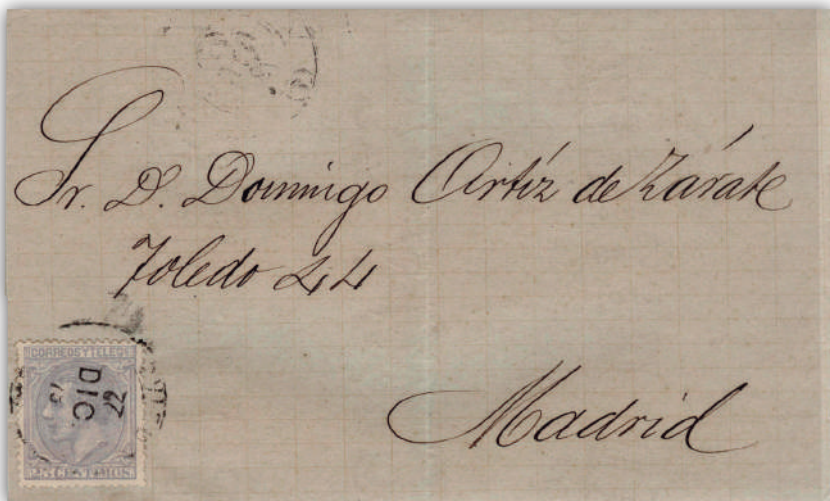 Sr. D. Domingo Ortíz de Zárate
Toledo 44
Madrid
CORREOS Y TELEG
DIC
25 CENTIMOS.